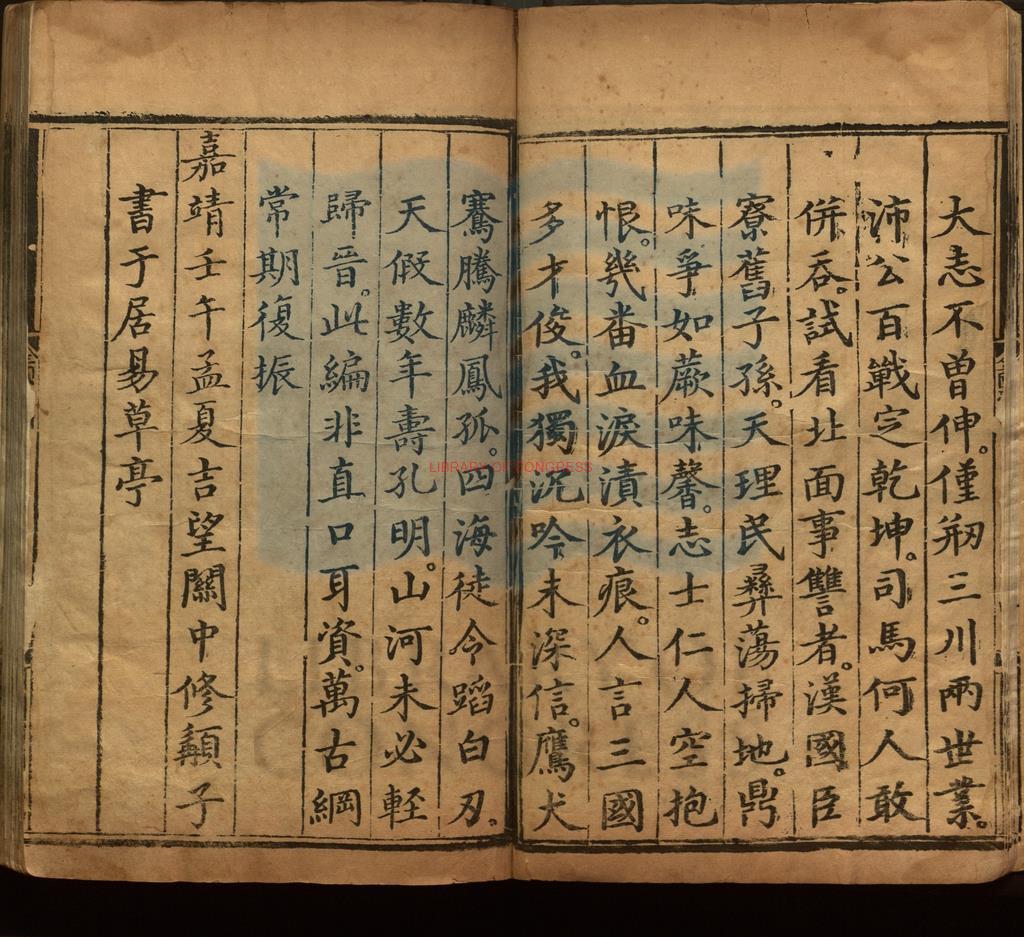 大志不曾伸。僅剏三川兩世業。
沛公百戰定乾坤。司馬何人敢
併吞。試看北面事讐者。漢國臣
寮舊子孫。天理民彞蕩掃地。鼎
味爭如蕨味馨。志士仁人空抱
恨。幾番血淚漬衣痕。人言三國
多才俊。我獨沉吟未深信。鷹犬
騫騰麟鳳孤。四海徒令蹈白刃。
天假數年壽孔明。山河未必輕
歸晉。此編非直口耳資。萬古綱
常期復振
嘉靖壬午孟夏吉望關中修顛子
書于居易草亭
LIBRARY OF CONGRESS